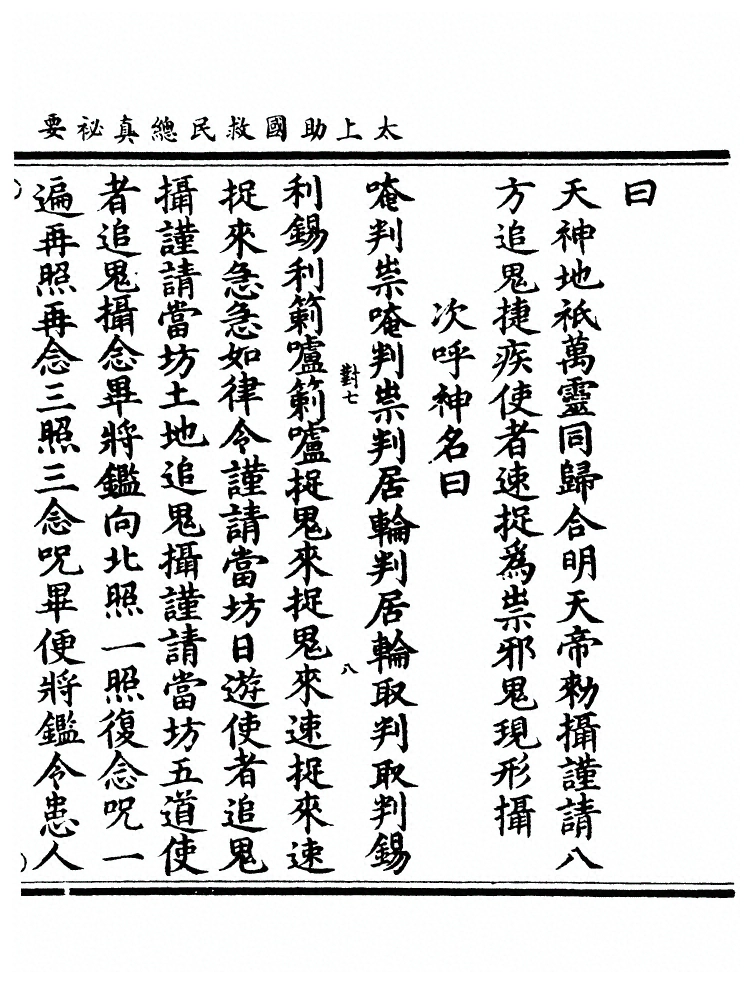 太上助國救民總真祕要
曰
天神地祇萬靈同歸合明天帝勑攝謹請八
方追鬼捷疾使者速捉為祟邪鬼現形攝
次呼神名曰
唵判祟唵判祟判居輪判居輪取判取判錫
對七
八
利錫利箣嚧箣嚧捉鬼來捉鬼來速捉來速
捉來急急如律令謹請當坊日遊使者追鬼
攝謹請當坊土地追鬼攝謹請當坊五道使
者追鬼攝念畢將鑑向北照一照復念咒一
遍再照再念三照三念咒畢便將鑑令患人